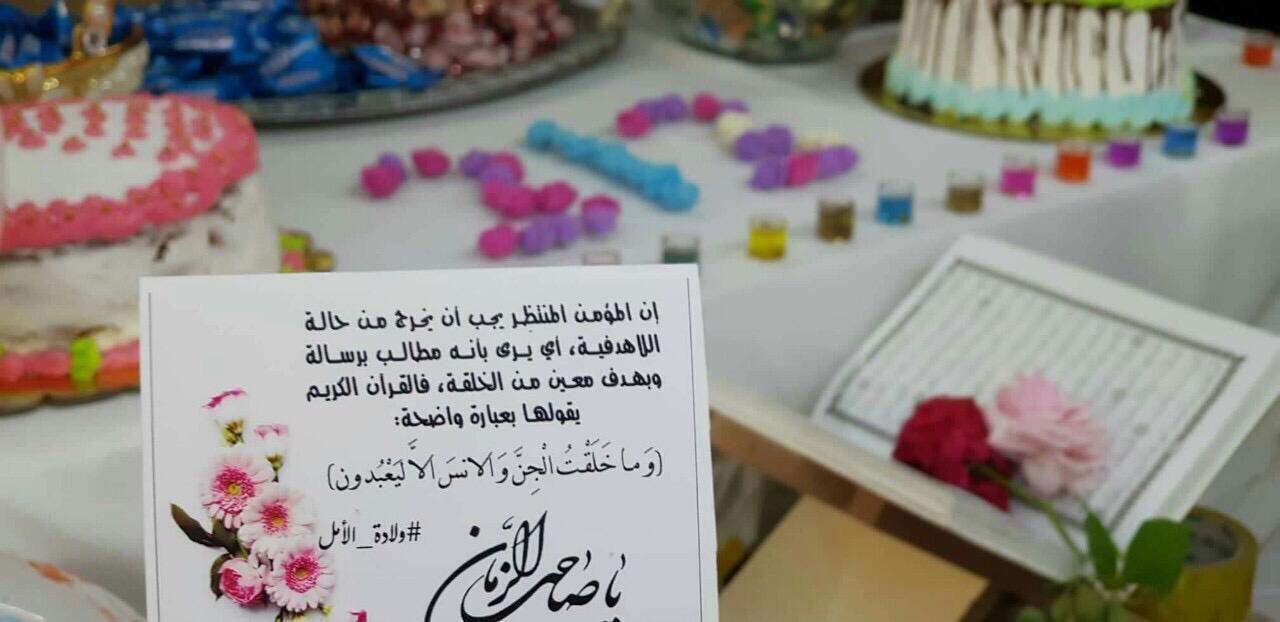 إن المؤمن المنتظر يجب أن يخرج من حالة
اللاهدفية، أي يرى بأنه مطالب برسالة
وبهدف معين من الخلقة، فالقرآن الكريم
يقولها بعبارة واضحة:
(وَما خَلَقْتُ الْجِنَّ وَالانسَ الاَّ لِيَعْبُدون)
#ولادة_الأمل
يا صاحب الزمان